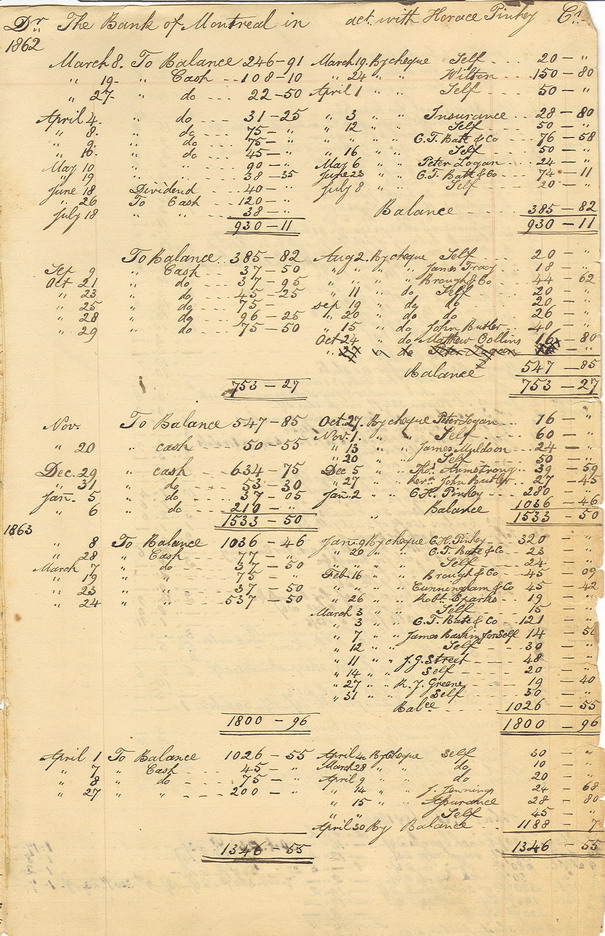 Dr The Bank of Montreal in acct with Horace Pinhey Cr
1862
March 8. To Balance 246-91 March 19. By cheque Self 20 - "
" 19- " Cash 108-10 " 24 " " Wilson 150-80
" 27- " do 22-50 April 1 " " Self 50 - "
April 4 " do 31-25 " 3 " " Insurance 28-80
" 8. " do 75-" " 12 " " Self 50 - "
" 9. " do 75-" " " " C.T. Bate & Co 76-58
" 16. " do 45-" " 16 " " Self 50 - "
May 10 " " 90-" May 6 " " Peter Logan 24 - "
" 19 " " 38-35 June 23 " " C.T. Bate & Co 74-11
June 18 Dividend 40-" July 8 " " Self 20 - "
" 26 To Cash 120-"
July 18 " " 38-" Balance 385-82
930-11 930-11
To Balance 385-82 Aug 2. By cheque Self 20 - "
Sep 9 " Cash 37-50 " " " " James Tracy 18 - "
Oct 21 " do 37-95 " " " " Brough & Co 44-62
" 23 " do 45-25 " 11 " do Self 20 - "
" 25 " do 75-" Sep 19 " do do 20 - "
" 28 " do 96-25 " 20 " do do 26 - "
" 29 " do 75-50 " 15 " do John Butler 40 - "
Oct 24 " do Mathew Collins 16-80
Balance 547-85
753-27 753-27
Nov. To Balance 547-85 Oct 27. By cheque Peter Logan 16 - "
Nov. 1. " " Self 60 - "
" 20 " cash 50-55 " 13 " " James Muldoon 24 - "
" 20 " " Self 50 - "
Dec. 29 " cash 634-75 Dec 5 " " Thos. Armstrong 39-59
" 31 " do 53-30 " 27 " " Revd. John Butler 27-45
Jany. 5 " do 37-05 Jany. 2 " " C.H. Pinhey 280 - "
" 6 " do 210-" Balance 1036-46
1533-50 1533-50
1863
" 8 To Balance 1036-46 Jany. 9 By cheque C.H. Pinhey 320 - "
" 28 " Cash 77-" " 20 " " C.T. Bate & Co 23 - "
March 7 " do 37-50 " " " Self 24 - "
" 19 " " 75-" Feb. 16 " " Brough & Co 45-09
" 23 " " 37-50 " " " Cunningham & Co 45-42
" 24 " " 537-50 " 26 " " Robt. Sparks 19 - "
March 3 " " Self 15 - "
" 3 " " C.T. Bate & Co 121 - "
" 7 " " James Baskin for Self 14-50
" 12 " " Self 30 - "
" 11 " " J.G. Street 48 - "
" 14 " " Self 20 - "
" 27 " " K.J. Greene 19-40
" 31 " " Self 30 - "
Balce 1026-55
1800-96 1800-96
April 1 To Balance 1026-55 April 4 By Cheque Self 30 - "
" 7 " Cash 45-" March 28 " " do 10 - "
" 8 " do 75-" April 9 " " do 20 - "
" 27 " " 200-" " 14 " " J. Jennings 24-68
" 15 " " Insurance 28-80
" " " Self 45 - "
April 30 By Balance 1188-7
1346-55 1346-55